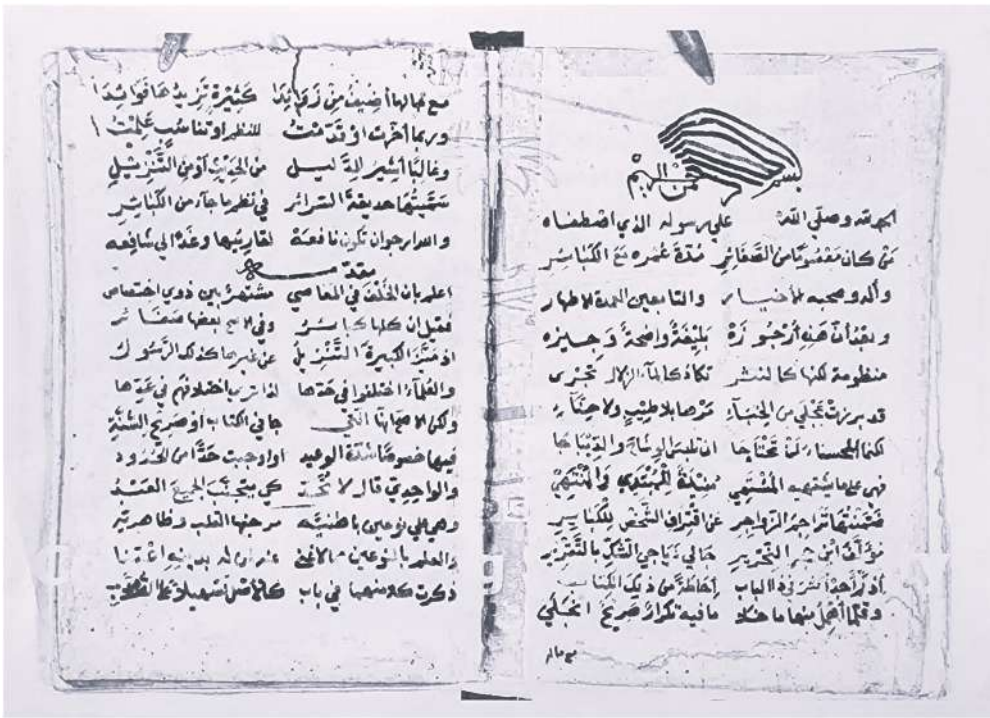 بسم الله الرحمن الرحيم
الحمد لله وصلى الله على رسوله الذي اصطفاه
من كان معصوما من الصغائر مدة عمره مع الكبائر
وآله وصحبه الأخيار والتابعين الأطهار
وبعد أن هذه أرجوزة بليغة واضحة وجيزه
منظومة لكنها كالنثر تكاد كالماء الزلال تجرى
قد برزت تجلى من الخباء بلا طيب ولا حناء
لكنما الحسناء تحتاجا ان تلبس الوشاح والديباجا
فهى على ما يشتهيه المشتهي مفيدة للمبتدي والمنتهي
ضمنتها تراجم الزواجر عن اقتراف الشخص للكبائر
مؤلف ابن حجر النحرير جالي دياجي الشك بالتقرير
اذ لم أر أحدا في ذا الباب إحاطة من ذلك الكتاب
وقلما أهمل منها ما خلا ما فيه تكرار صريح انجلي
مع مالها
مع مالها أضيف من زوائدا كثيرة تزيدها فوائدا
وربما أخرت او قدمت للنظم او تناسب علمت
وغالبا أشير للدليل من الحديث أو من التنزيل
سميتها حديقة السرائر في نظم ما جاء من الكبائر
والله ارجو ان تكون نافعة لقاريها وغدا لي شافعه
مقدمة
اعلم بان الخلف في المعاصي مشتهر بين ذوي اختصاص
فقيل ان كلها كبائر وفي الاصح بعضها صغائر
اذ ميز الكبيرة التنزيل عن غيرها كذلك الرسول
والعلماء اختلفوا في حدها لذا ترى اختلافهم في عدها
ولكن الاصحابها التي جا في الكتاب أو صريح السنة
فيها خصوصا شدة الوعيد او اوجبت حدا من الحدود
والواحدي قال لا تحد كي يتجنب الجميع العبد
وهي على نوعين باطنيه مرجعها القلب وظاهريه
والعلم بالنوعين
ذكرت كلا منهما في باب كالاصل تسهيلا على الطلاب